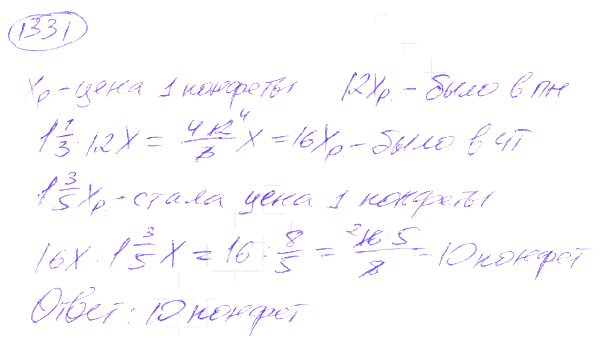 1331
x р. - цена 1 конфеты 12x р. - было в пн
1 1/3 · 12x = 4·12⁴/3 x = 16x р. - было в чт
1 3/5 x р. - стала цена 1 конфеты
16x : 1 3/5 x = 16 : 8/5 = ²16·5/8 = 10 конфет
Ответ: 10 конфет